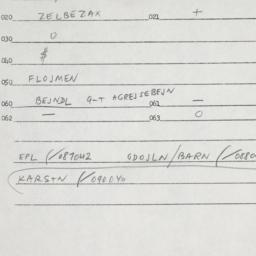 020 ZELBEZAX 021 +
030 0
040 $
050 FLOJMEN
060 BEJNDL G-T AGREJSEBEJN 061 —
062 — 063 0
EPL (/089042 GDOJLN/BARN (/0880
KARSTN (/090040